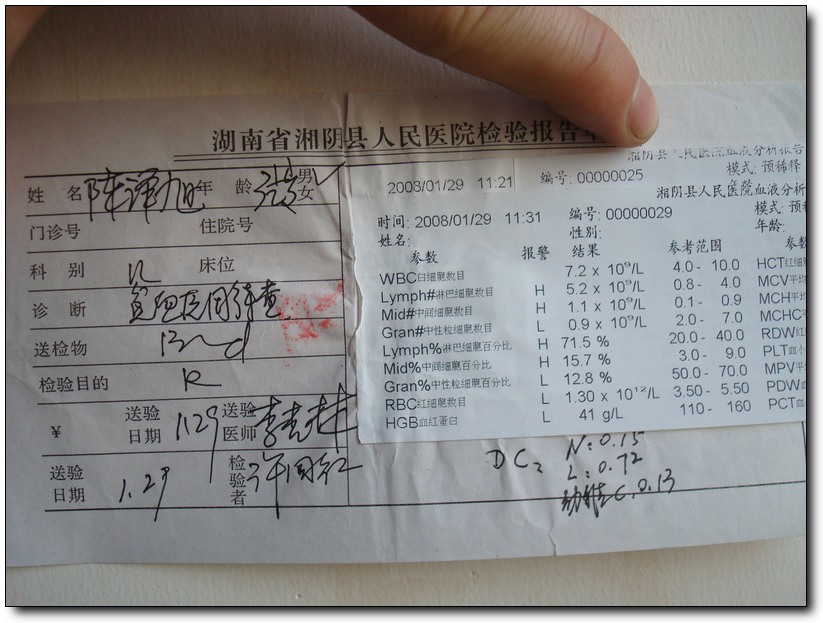 湖南省湘阴县人民医院检验报告单
姓 名 陈泽旭 年 龄 男 女
门诊号 住院号
科 别 儿 床位
诊 断 贫血原因待查
送检物 Bld
检验目的 R
¥ 送验日期 1.29 送验医师
送验日期 1.29 检验者 许同红
湘阴县人民医院血液分析报告
2008/01/29 11:21 编号: 00000025 模式: 预稀释
湘阴县人民医院血液分析
时间: 2008/01/29 11:31 编号: 00000029 模式: 预稀
姓名: 性别: 年龄:
参数 报警 结果 参考范围 参数
WBC白细胞数目 7.2 x 10^9/L 4.0 - 10.0 HCT红细
Lymph#淋巴细胞数目 H 5.2 x 10^9/L 0.8 - 4.0 MCV平均
Mid#中间细胞数目 H 1.1 x 10^9/L 0.1 - 0.9 MCH平均
Gran#中性粒细胞数目 L 0.9 x 10^9/L 2.0 - 7.0 MCHC平均
Lymph%淋巴细胞百分比 H 71.5 % 20.0 - 40.0 RDW红
Mid%中间细胞百分比 H 15.7 % 3.0 - 9.0 PLT血小
Gran%中性粒细胞百分比 L 12.8 % 50.0 - 70.0 MPV平
RBC红细胞数目 L 1.30 x 10^12/L 3.50 - 5.50 PDW血
HGB血红蛋白 L 41 g/L 110 - 160 PCT血
DC: N: 0.15
L: 0.72
幼稚C. 0.13